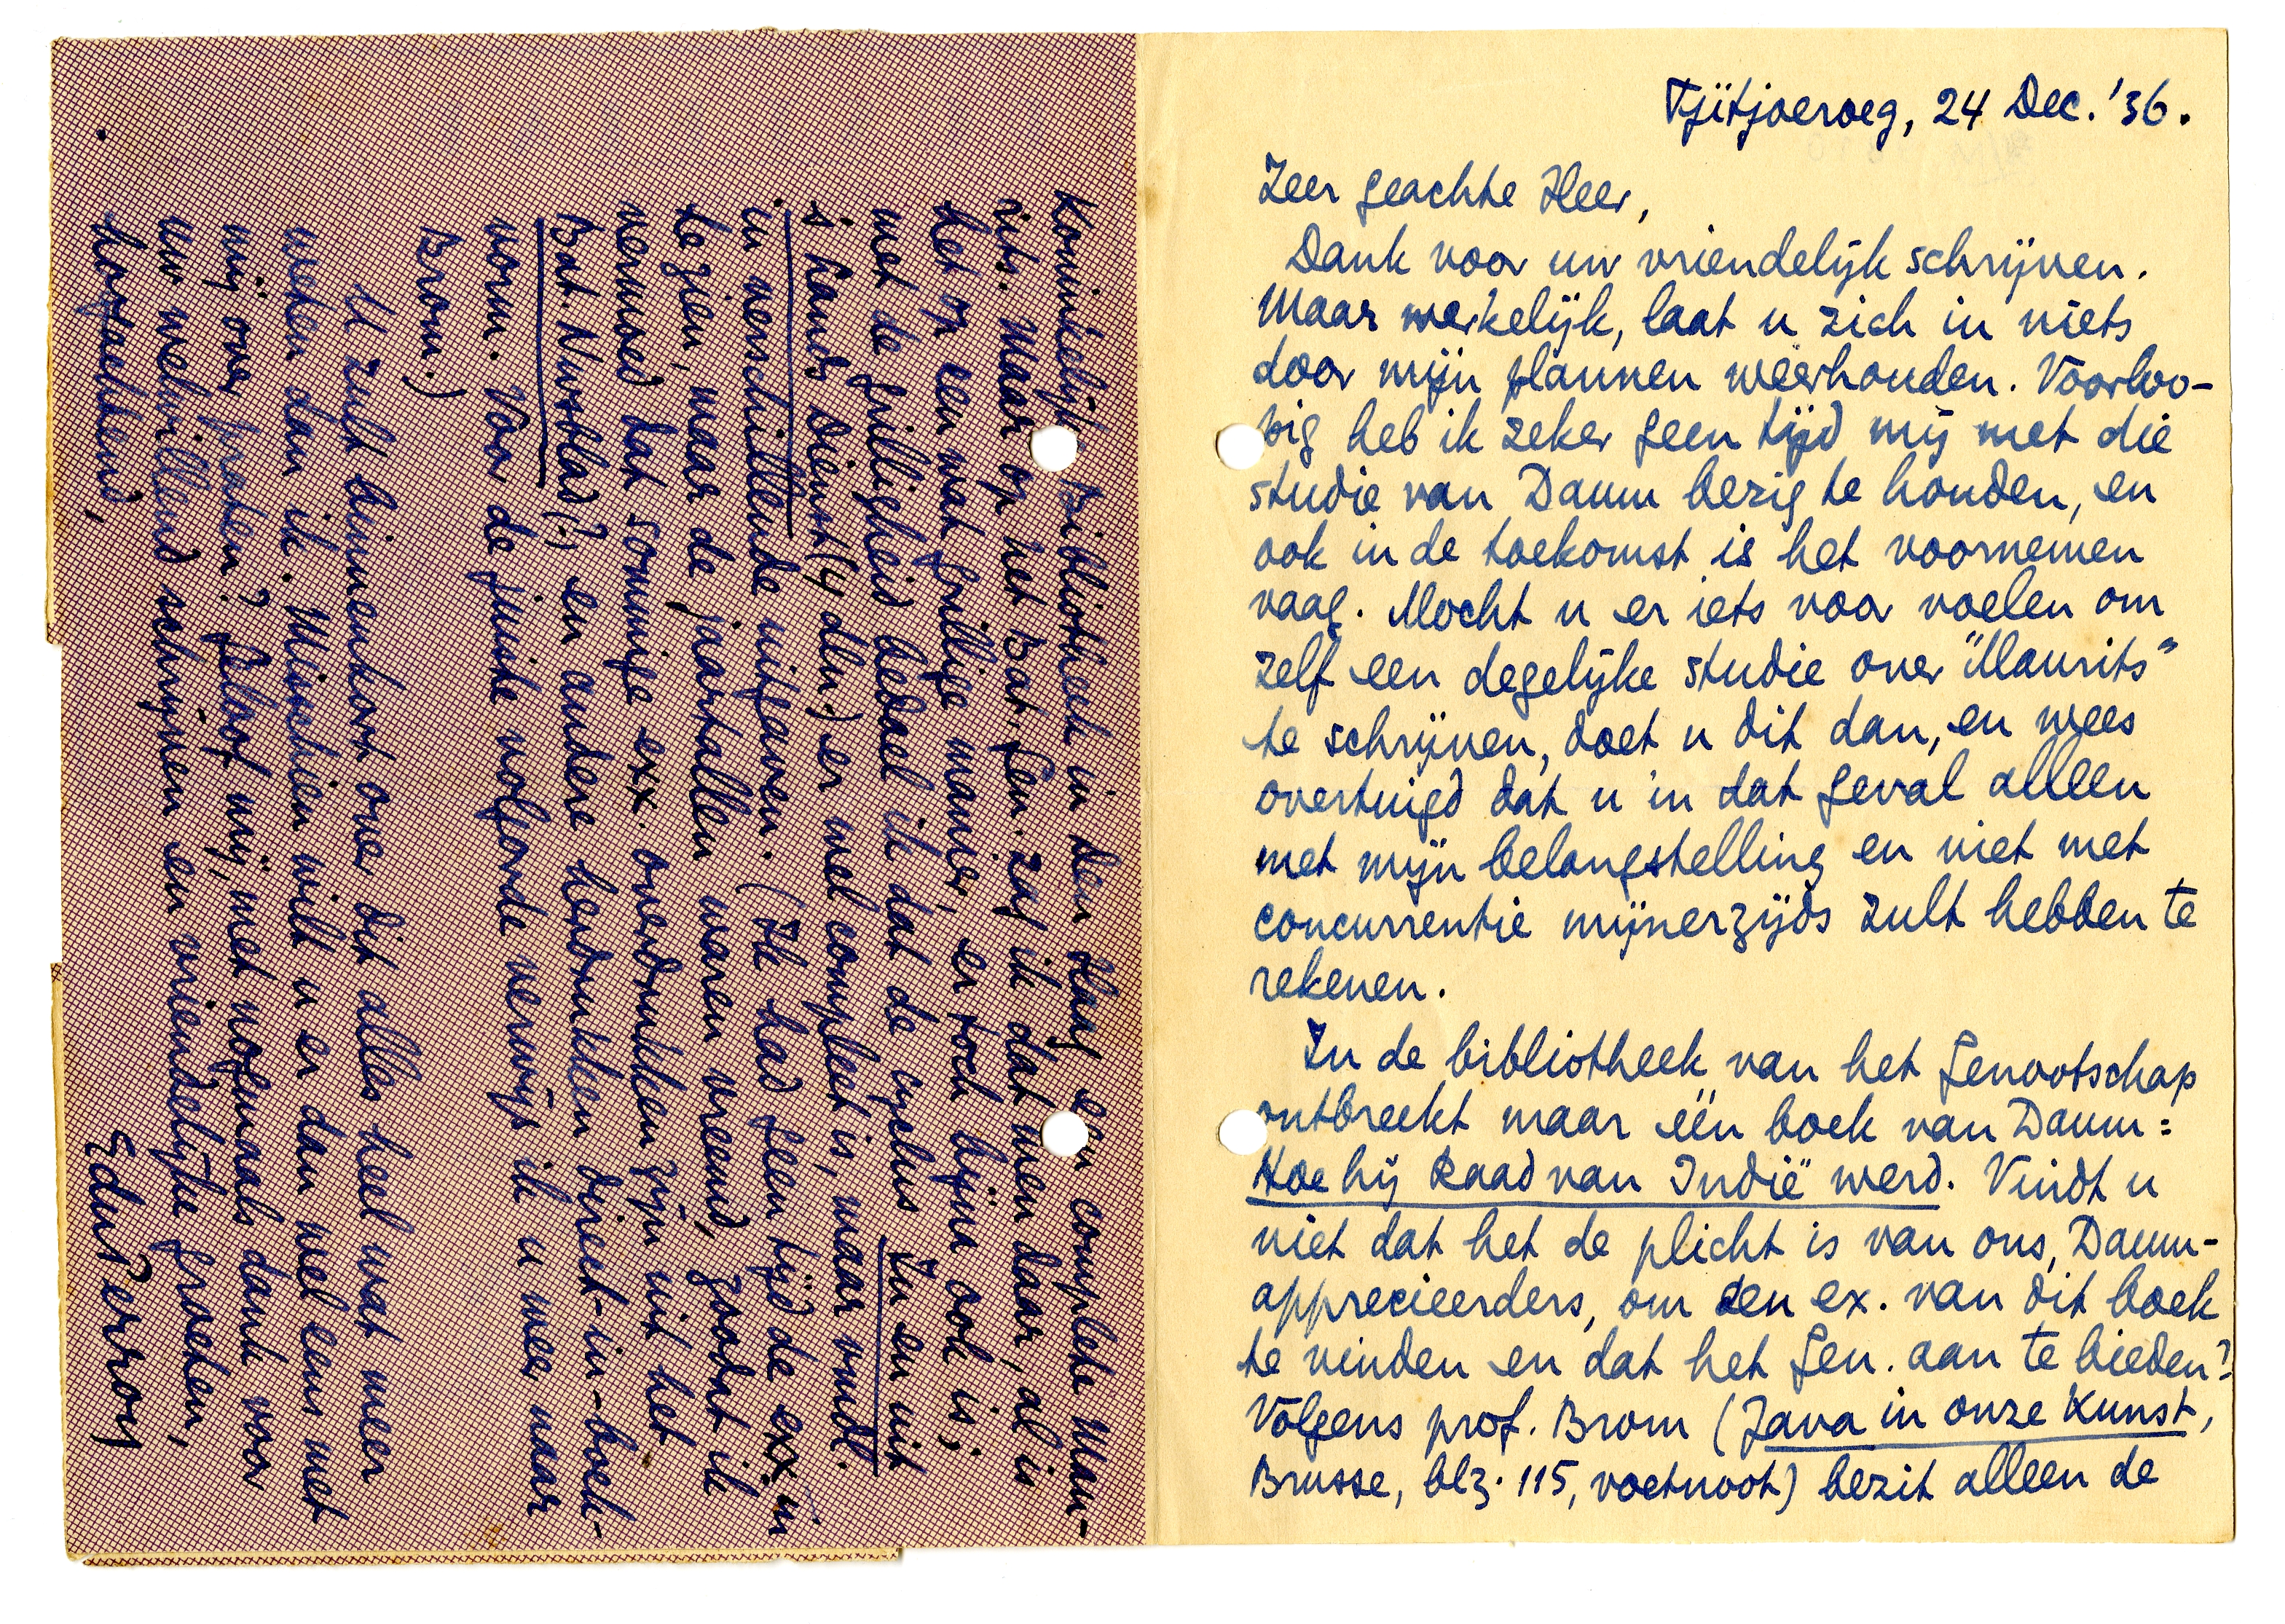 Tjitjoeroeg, 24 Dec. '36.
Zeer geachte Heer,
Dank voor uw vriendelijk schrijven.
Maar werkelijk, laat u zich in niets
door mijn plannen weerhouden. Voorloo-
pig heb ik zeker geen tijd mij met die
studie van Daum bezig te houden, en
ook in de toekomst is het voornemen
vaag. Mocht u er iets voor voelen om
zelf een degelijke studie over "Maurits"
te schrijven, doet u dit dan, en wees
overtuigd dat u in dat geval alleen
met mijn belangstelling en niet met
concurrentie mijnerzijds zult hebben te
rekenen.
In de bibliotheek van het Genootschap
ontbreekt maar één boek van Daum:
Hoe hij Raad van Indië werd. Vindt u
niet dat het de plicht is van ons, Daum-
apprecieerders, om een ex. van dit boek
te vinden en dat het Gen. aan te bieden?
Volgens prof. Brom (Java in onze Kunst,
Brusse, blz. 115, voetnoot) bezit alleen de
Koninklijke Bibliotheek in Den Haag een complete Mau-
rits. Maar op het Bat. Gen. zag ik dat men daar, al is
het op een wat grillige manier, er toch bijna ook is;
met de grilligheid bedoel ik dat de cyclus In en uit
's lands dienst (4 dln.) er wel compleet is, maar vndl.
in verschillende uitgaven. (Ik had geen tijd de exx. in
te zien, maar de jaartallen waren vreemd, zoodat ik
vermoed dat sommige exx. overdrukken zijn uit het
Bat. Nwsblad (?) en andere herdrukken direct-in-boek-
vorm. Voor de juiste volgorde verwijs ik u weer naar
Brom.)
U zult binnenkort over dit alles heel wat meer
weten dan ik. Misschien wilt u er dan wel eens met
mij over praten? Geloof mij, met nogmaals dank voor
uw welwillend schrijven en vriendelijke groeten,
hoogachtend,
EduPerron